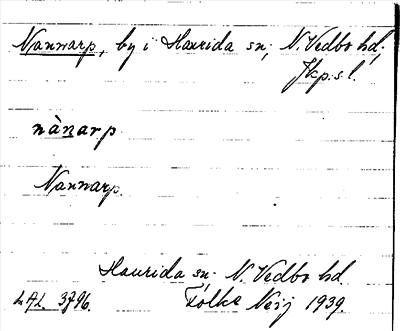 Nannarp, by i Haurida sn; N. Vedbo hd;
Jkp.s l.
nànarp
Nannarp.
Haurida sn. N. Vedbo hd.
LAL 3796. Folke Neij 1939.